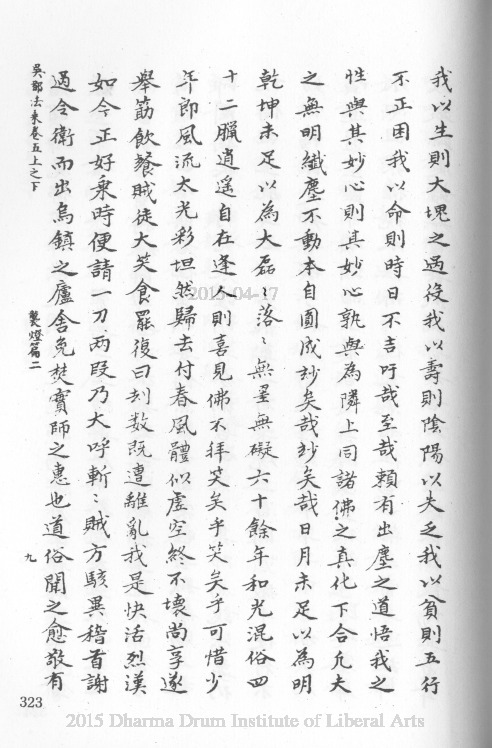 我以生則大塊之過役我以壽則陰陽以失乏我以貧則五行
不正困我以命則時日不吉吁哉至哉賴有出塵之道悟我之
性與其妙心則其妙心孰與為隣上同諸佛之真化下合凡夫
之無明纖塵不動本自圓成玅矣哉玅矣哉日月未足以為明
乾坤未足以為大磊〻落〻無罣無礙六十餘年和光混俗四
十二臘逍遙自在逢人則喜見佛不拜笑矣乎笑矣乎可惜少
年郎風流太光彩坦然歸去付春風體似虛空終不壞尚享遂
舉筯飲餐賊徒大笑食罷復曰刦数既遭離亂我是快活烈漢
如今正好乘時便請一刀兩段乃大呼斬〻賊方駭異稽首謝
過令衛而出烏鎮之廬舍免焚實師之惠也道俗聞之愈敬有
吳郡法乘卷五上之下
熒燈篇二
九
323
2015-04-17
2015 Dharma Drum Institute of Liberal Arts